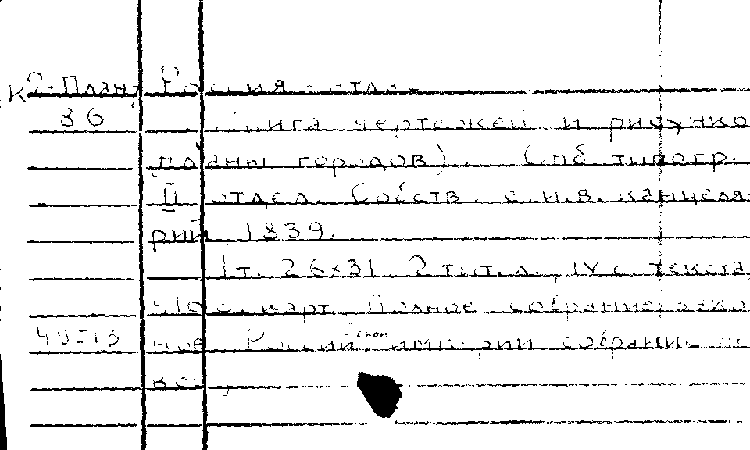 К2-План Россия - отдел
36 Книга чертежей и рисунко
(планы городов). Спб. типогр.
II отдел. Собств. е.и.в. канцеля-
рии 1839.
1т. 26х31. 2 тит.л., IV с. текста
с. карт. Полное собрание зако
нов Российской империи собрание